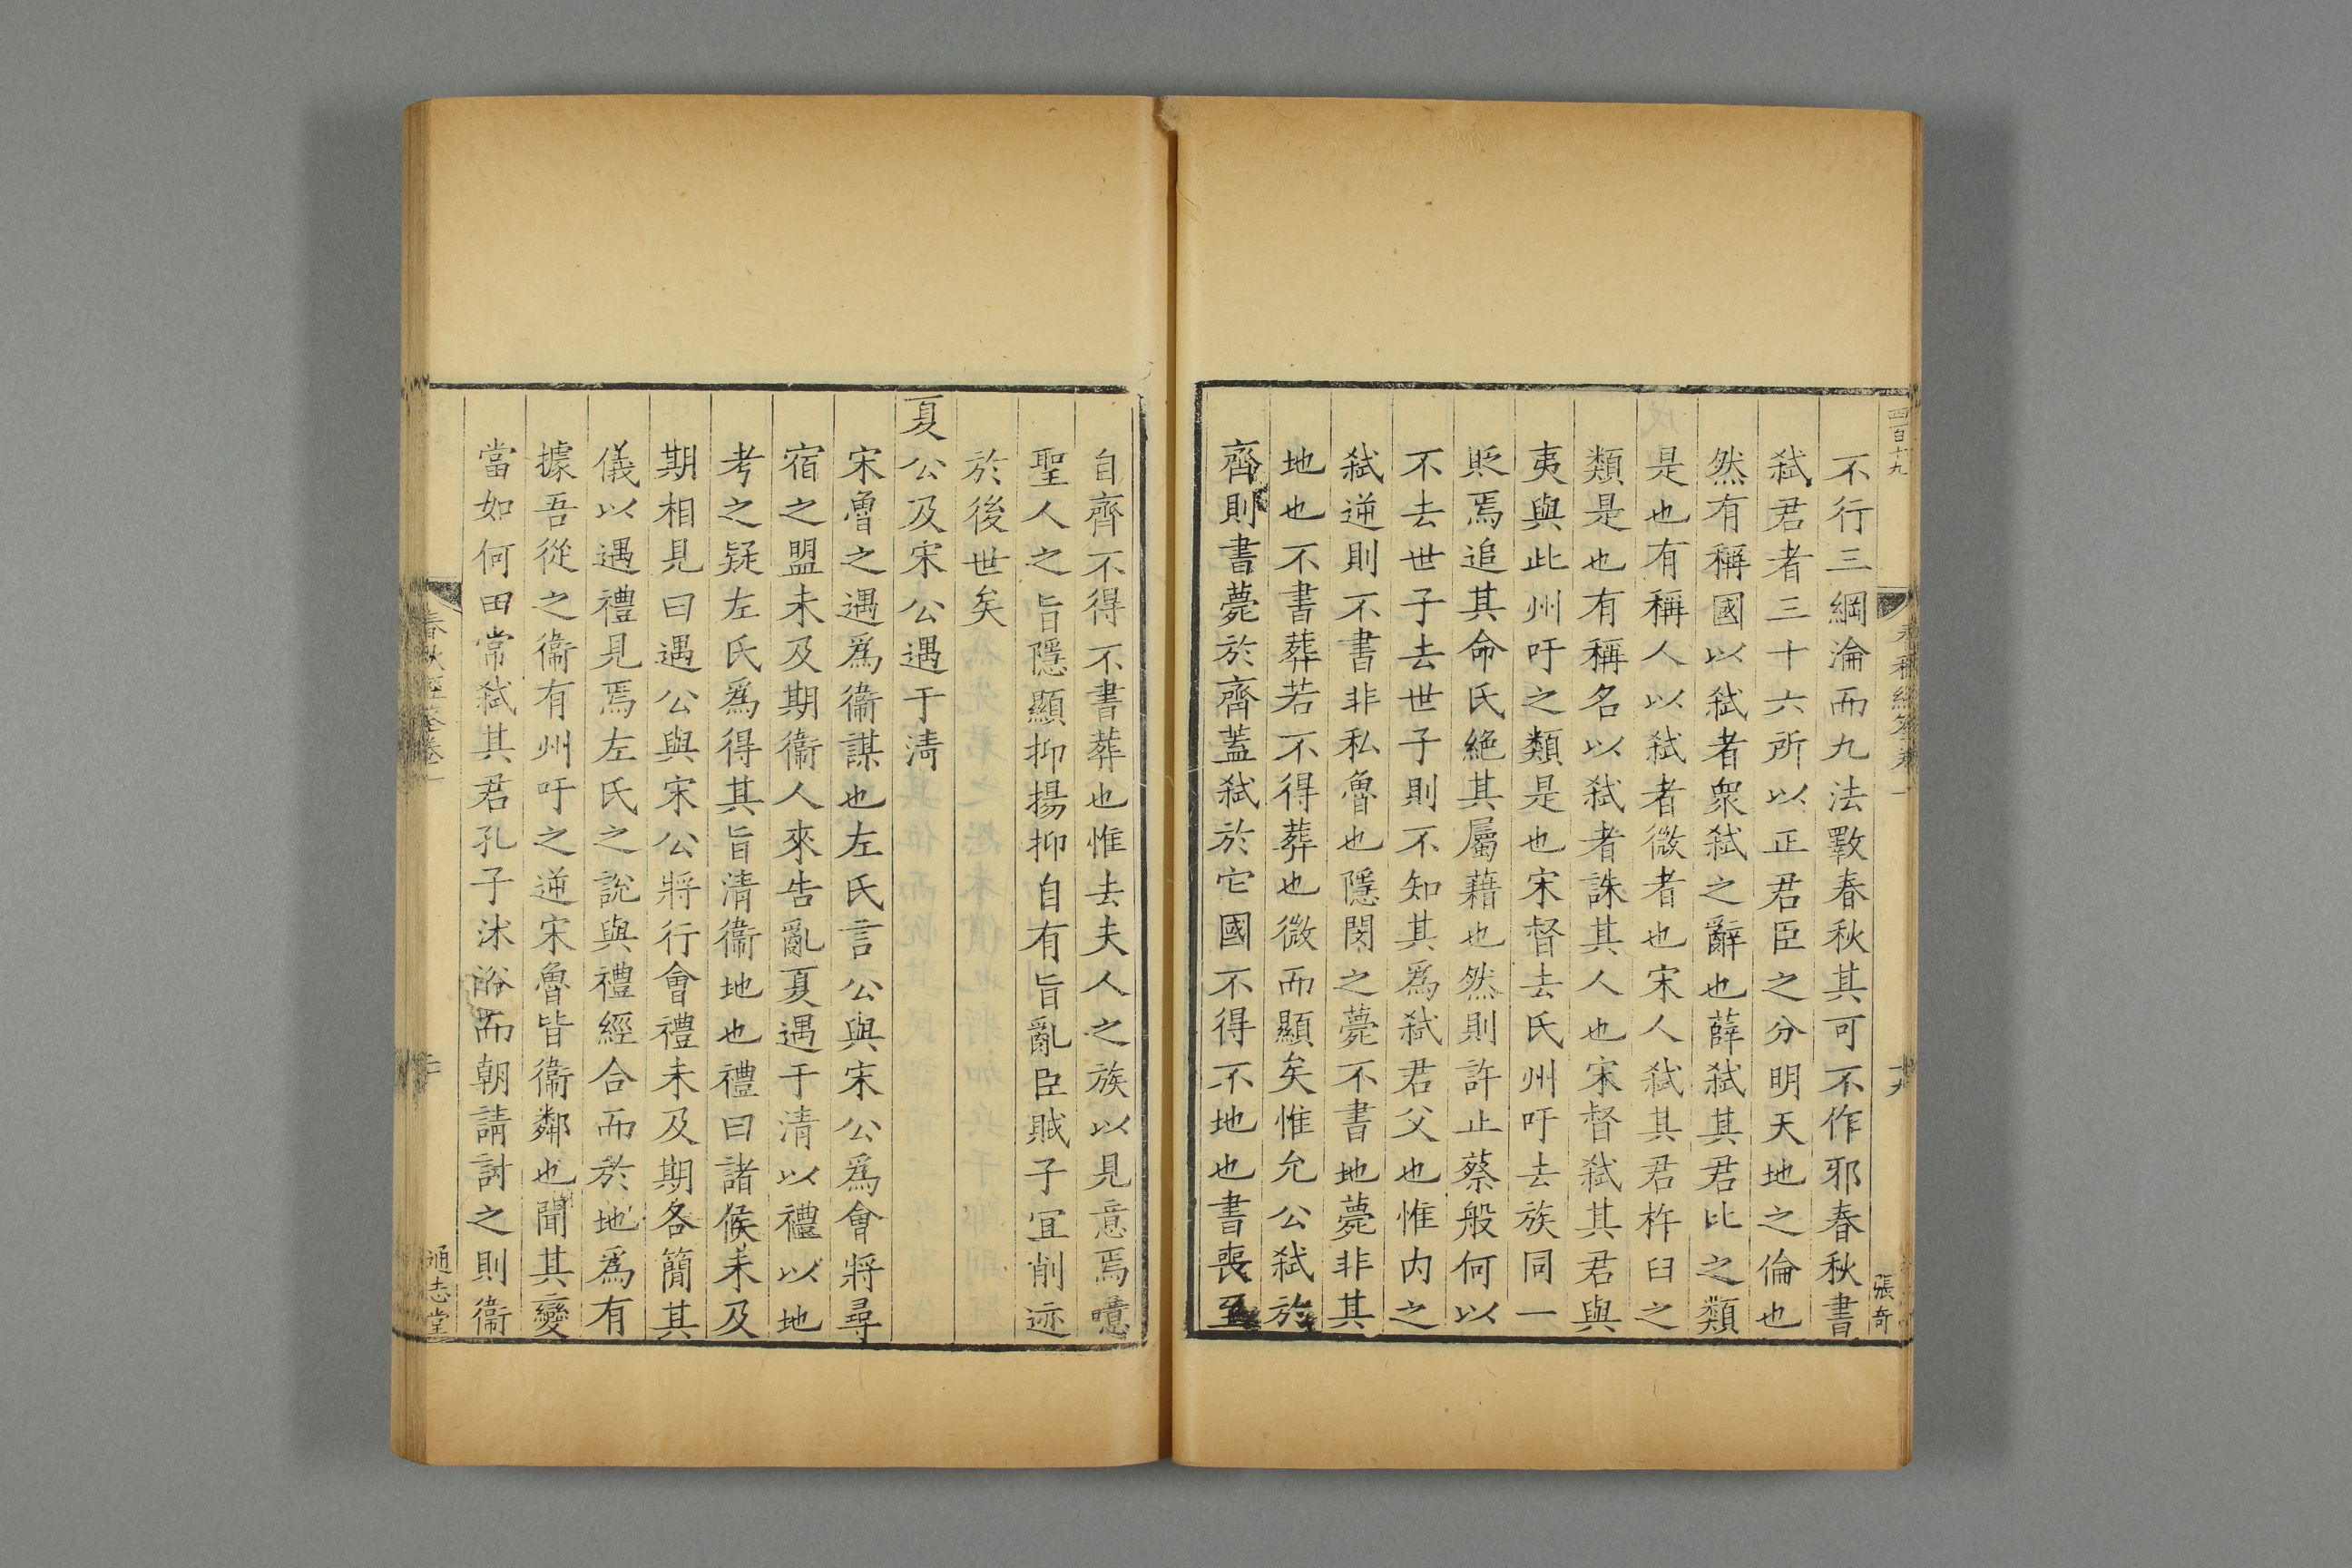 四百十九
春秋經筌卷一
十九
張奇
不行三綱淪而九法斁春秋其可不作邪春秋書
弑君者三十六所以正君臣之分明天地之倫也
然有稱國以弑者衆弑之辭也薛弑其君比之類
是也有稱人以弑者微者也宋人弑其君杵臼之
類是也有稱名以弑者誅其人也宋督弑其君與
夷與此州吁之類是也宋督去氏州吁去族同一
貶焉追其命氏絶其屬藉也然則許止蔡般何以
不去世子去世子則不知其爲弑君父也惟内之
弑逆則不書非私魯也隱閔之薨不書地薨非其
地也不書葬若不得葬也微而顯矣惟允公弑於
齊則書薨於齊蓋弑於它國不得不地也書喪至
自齊不得不書葬也惟去夫人之族以見意焉噫
聖人之旨隱顯抑揚抑自有旨亂臣賊子宜削迹
於後世矣
夏公及宋公遇于淸
宋魯之遇爲衞謀也左氏言公與宋公爲會將尋
宿之盟未及期衞人來告亂夏遇于清以禮以地
考之疑左氏爲得其旨清衞地也禮曰諸侯未及
期相見曰遇公與宋公將行會禮未及期各簡其
儀以遇禮見焉左氏之說與禮經合而於地爲有
據吾從之衞有州吁之逆宋魯皆衞鄰也聞其變
當如何田常弑其君孔子沐浴而朝請討之則衞
春秋經筌卷一
二十
通志堂